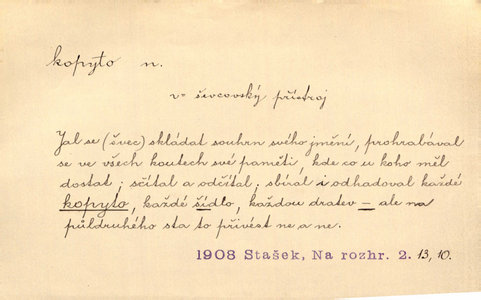 kopyto n.
v= ševcovský přístroj
Jal se (švec) skládat souhrn svého jmění, prohrabával
se ve všech koutech své paměti, kde co u koho měl
dostat; sčítal a odčítal, sbíral i odhadoval každé
kopyto, každé šídlo, každou dratev – ale na
půldruhého sta to přivést ne a ne.
1908 Stašek, Na rozhr. 2. 13, 10.